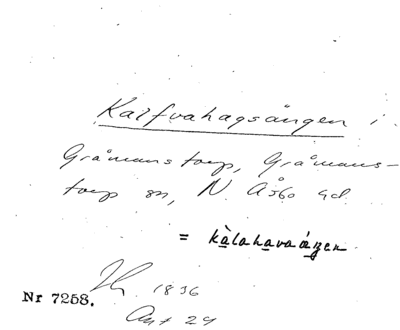 Kalfvahagsängen i
Gråmanstorp, Gråmans-
torp sn, N. Åsbo hd.
= kàlahavaáŋen
1836
Nr 7258.
Akt 24